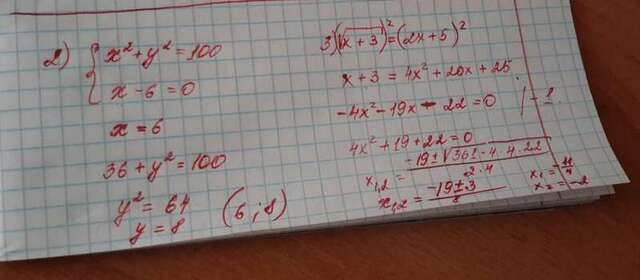 2) { x² + y² = 100
x - 6 = 0
x = 6
36 + y² = 100
y² = 64
y = 8 (6 ; 8)
3) (√x + 3)² = (2x + 5)²
x + 3 = 4x² + 20x + 25
-4x² - 19x - 22 = 0 / -1.
4x² + 19 + 22 = 0
x₁,₂ = -19 ± √361 - 4 · 4 · 22 / 2 · 4
x₁,₂ = -19 ± 3 / 8
x₁ = -11/4
x₂ = -2